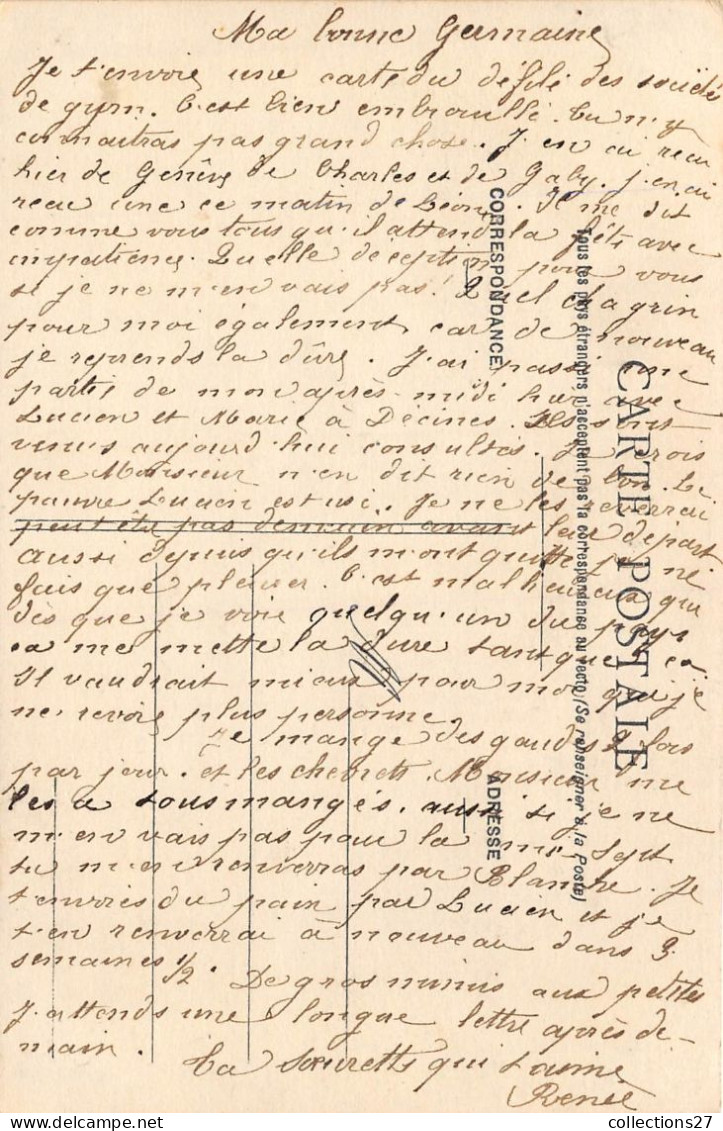 Ma bonne Germaine
Je t'envoie une carte du défilé des société
de gym. C'est bien embrouillé. Tu n'y
connaitras pas grand chose. J'en ai recu
hier de Genève de Charles et de Gaby. J'en ai
recu une ce matin de Léonie. Il me dit
comme vous tous qu'il attend la fête avec
impatience. Quelle déception pour vous
si je ne m'en vais pas! Quel chagrin
pour moi également car de nouveau
je reprends la dure. J'ai passé une
partie de mon après-midi hier avec
Lucien et Marie à Décines. Ils sont
venus aujourd'hui consultés. Je crois
que Monsieur n'en dit rien de bon. Le
pauvre Lucien est usé. Je ne les reverrai
peut être pas demain avant leur départ
aussi depuis qu'ils m'ont quittée je ne
fais que pleurer. C'est malheureux que
dès que je voie quelqu'un du pays
ca me mette la dure tant que ça
Il vaudrait mieux pour moi que je
ne revoie plus personne
Je mange des gaudes 2 fois
par jour. et les chevrets. Monsieur me
les a tous mangés. aussi si je ne
m'en vais pas pour la mi-Sept
tu m'en renverras par Blanche. Je
t'envoies du pain par Lucien et je
t'en renverrai à nouveau dans 3
semaines 1/2. De gros mimis aux petites
J'attends une longue lettre après de-
main.
Ta soeurette qui t'aime
Renée
CARTE POSTALE
Tous les pays étrangers n'acceptent pas la correspondance au recto (Se renseigner à la Poste)
CORRESPONDANCE
ADRESSE
collections27